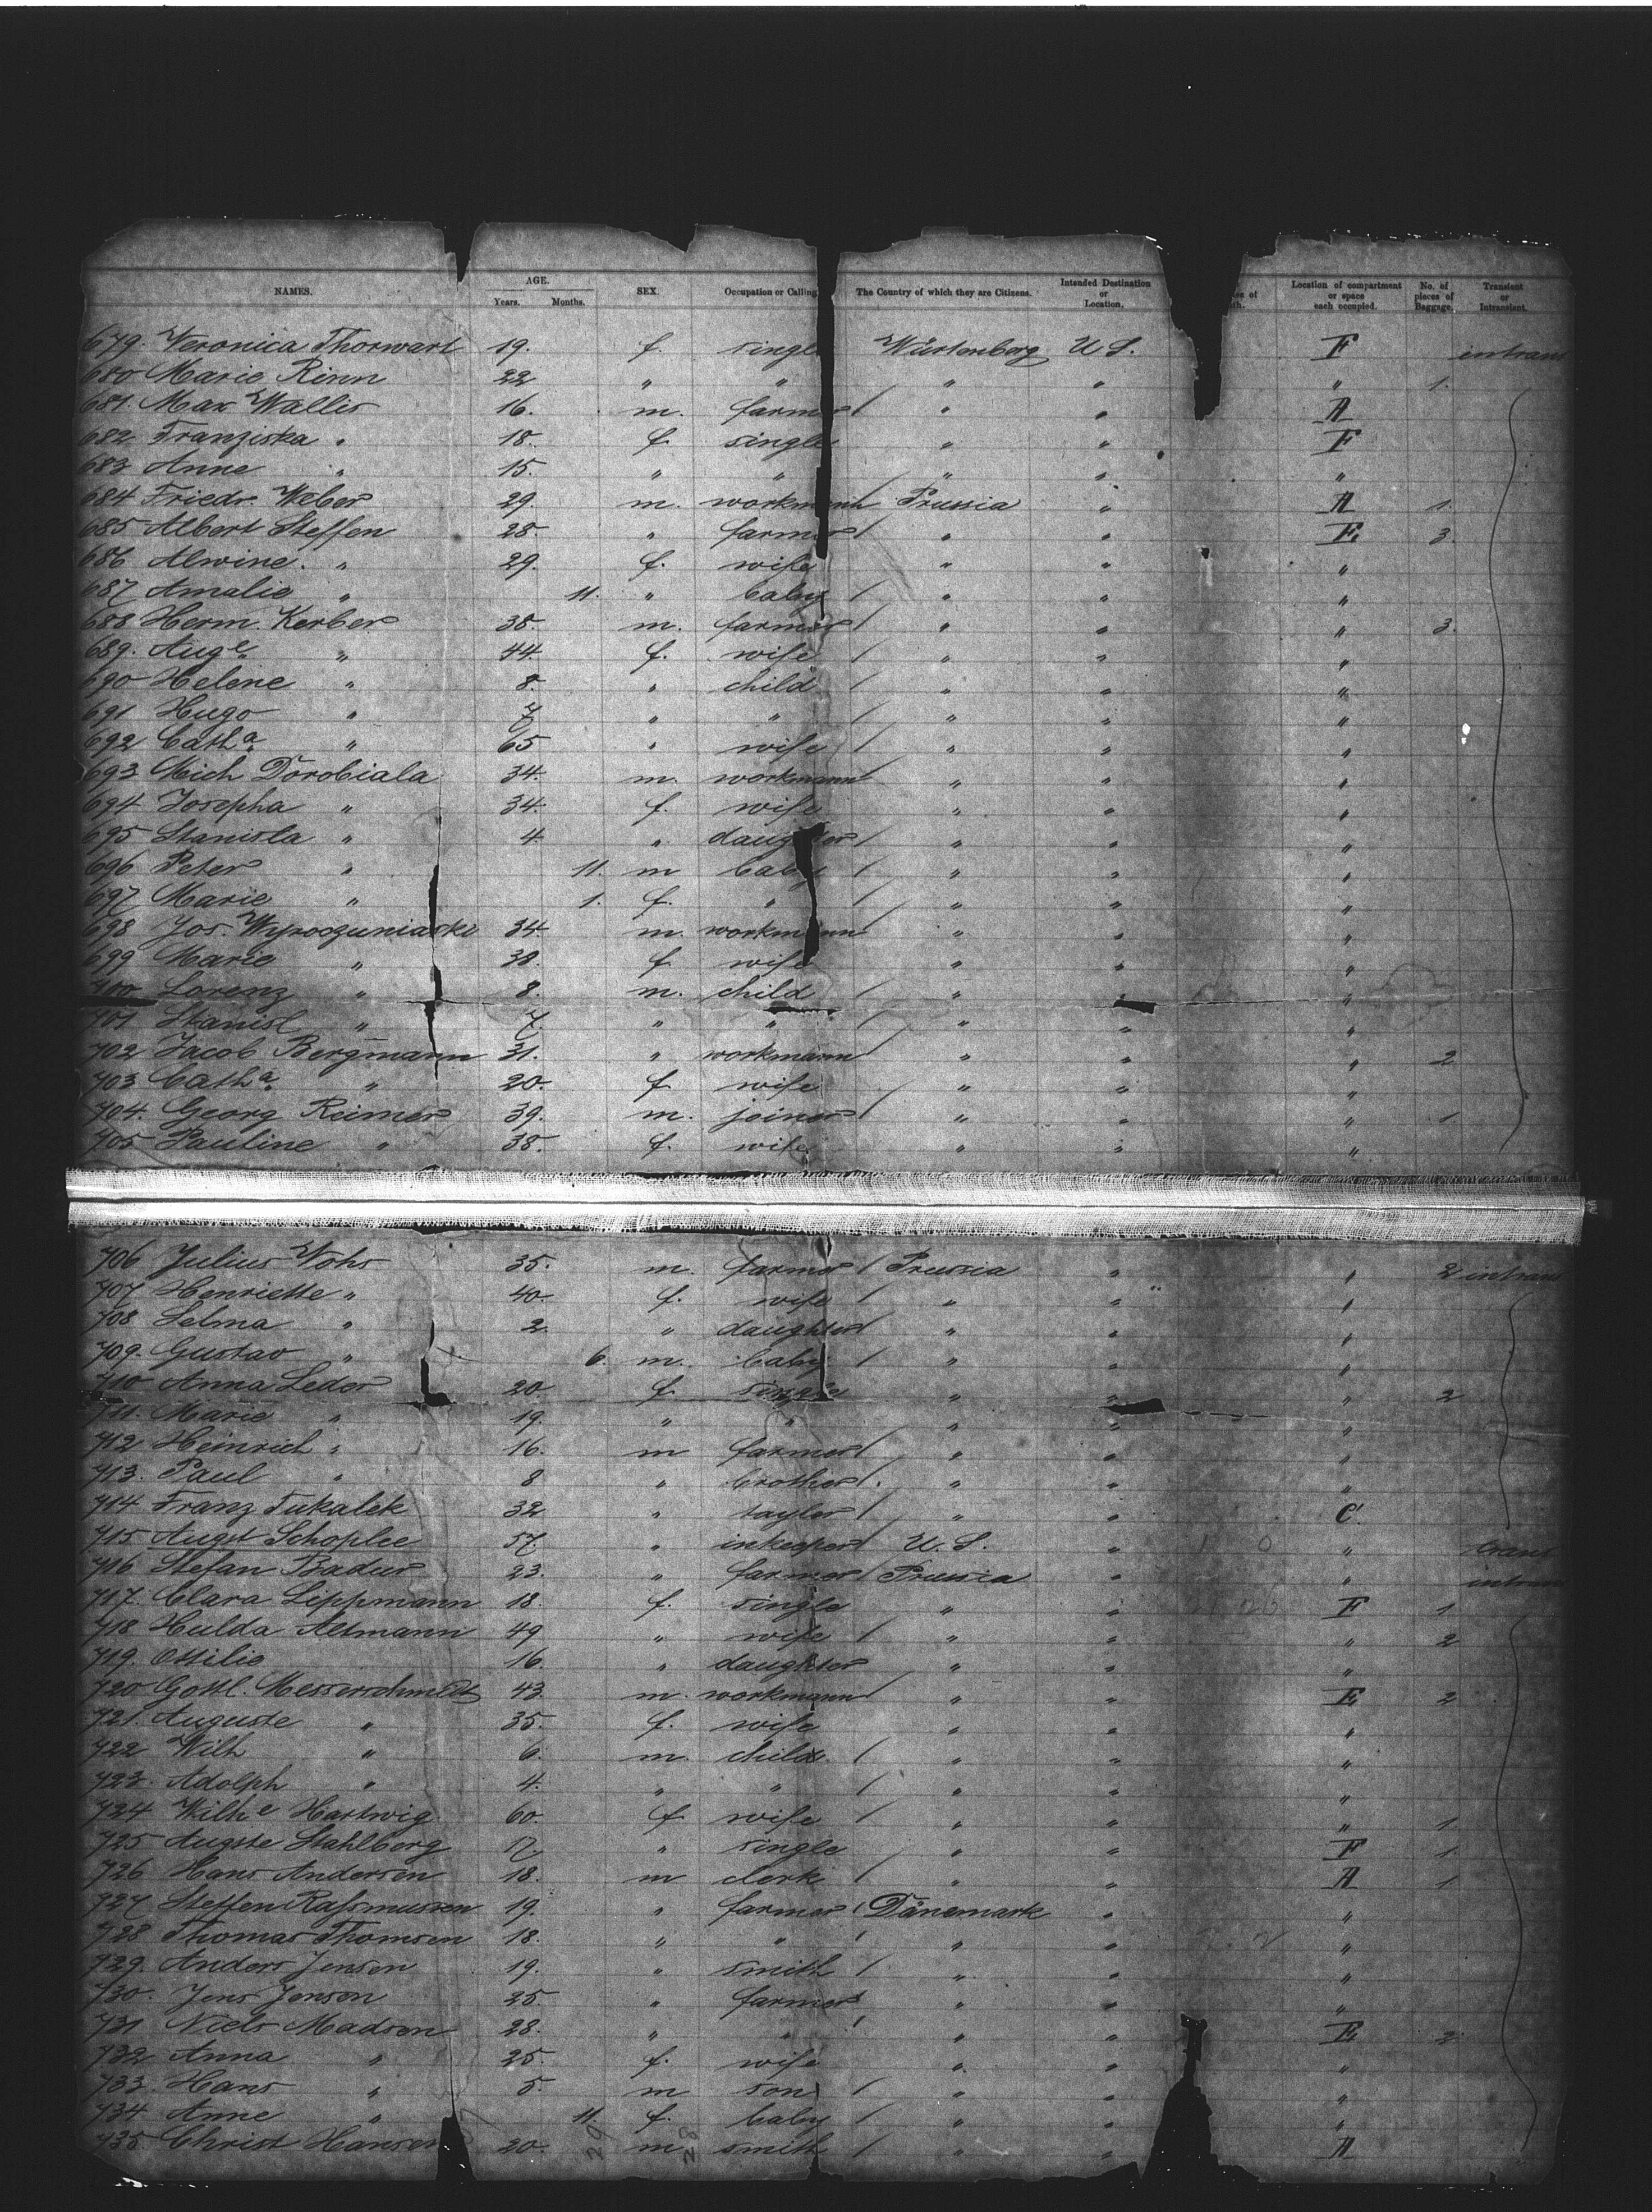 NAMES. AGE. Years. Months. SEX. Occupation or Calling The Country of which they are Citizens. Intended Destination or Location. Location of compartment or space each occupied. No. of pieces of Baggage. Transient or Intransient.
679. Veronica Thorwart 19. f. single Würtenberg U S. F intrans
680 Marie Rinn 22 " " " " " 1.
681. Max Wallis 16. m. farmer / " " A
682 Franziska " 18. f. single " " F
683 Anne " 15. " " " " "
684 Friedr. Weber 29. m. workmann Prussia " A 1.
685 Albert Steffen 28. " farmer / " " E. 3.
686 Alwine. " 29. f. wife " " "
687 Amalie " 11. " baby / " " "
688 Herm. Kerber 38. m. farmer / " " " 3.
689. Aug.e " 44. f. wife / " " "
690 Helene " 8. " child / " " "
691 Hugo " 7 " " / " " "
692 Cath.a " 65 " wife / " " "
693 Mich Dorobiala 34. m. workmann " " "
694 Josepha " 34. f. wife " " "
695 Stanisla " 4. " daughter / " " "
696 Peter " 11. m baby / " " "
697 Marie " 1. f. " / " " "
698 Jos. 34 m. workmann " " "
699 Marie " 38. f. wife " " "
700 Lorenz " 8. m. child / " " "
701 Stanisl " 7. " " / " " "
702 Jacob Bergmann 31. " workmann / " " " 2
703 Cath.a " 20. f. wife / " " "
704. Georg Reimer 39. m. joiner / " " " 1.
705 Pauline " 38. f. wife " " "
706 Julius Wohs 35. m. farmer / Prussia " " 2 intrans
707 Henriette " 40. f. wife / " " "
708 Selma " 2. " daughter / " " "
709. Gustav " 6. m. baby / " " "
710 Anna Leder 20. f. single " " " 2
711. Marie " 19. " " " " "
712 Heinrich " 16. m farmer / " " "
713. Paul " 8 " brother / " " "
714 Franz Tukalek 32 " tayler / " " C.
715 Augst Schoplee 57. " inkeeper U. S. " " trans
716 Stefan Badur 23. " farmer / Prussia " " intrans
717. Clara Lippmann 18. f. single " " F 1
718 Hulda Altmann 49 " wife / " " " 2
719. Ottilie 16. " daughter " " "
720 Gottl. Messerschmidt 43 m. workmann / " " E 2
721. Auguste " 35. f. wife " " "
722 Wilh " 6. m. child. / " " "
723. Adolph " 4. " " / " " "
724 Wilh.e Hartwig. 60. f. wife / " " " 1.
725 Auguste Stahlberg 17. " single " " F 1.
726 Hans Andersen 18. m clerk / " " A 1
727 Steffen Rasmussen 19. " farmer / Dänemark " "
728 Thomas Thomsen 18. " " / " " "
729. Anders Jensen 19. " smith / " " "
730. Jens Jenson 25. " farmer " " "
731 Niels Madsen 28. " " / " " E. 2
732 Anna " 25. f. wife " " "
733. Hans " 5. m son / " " "
734 Anne " 11. f. baby / " " "
735 Christ Hansen 20. m. smith / " " A